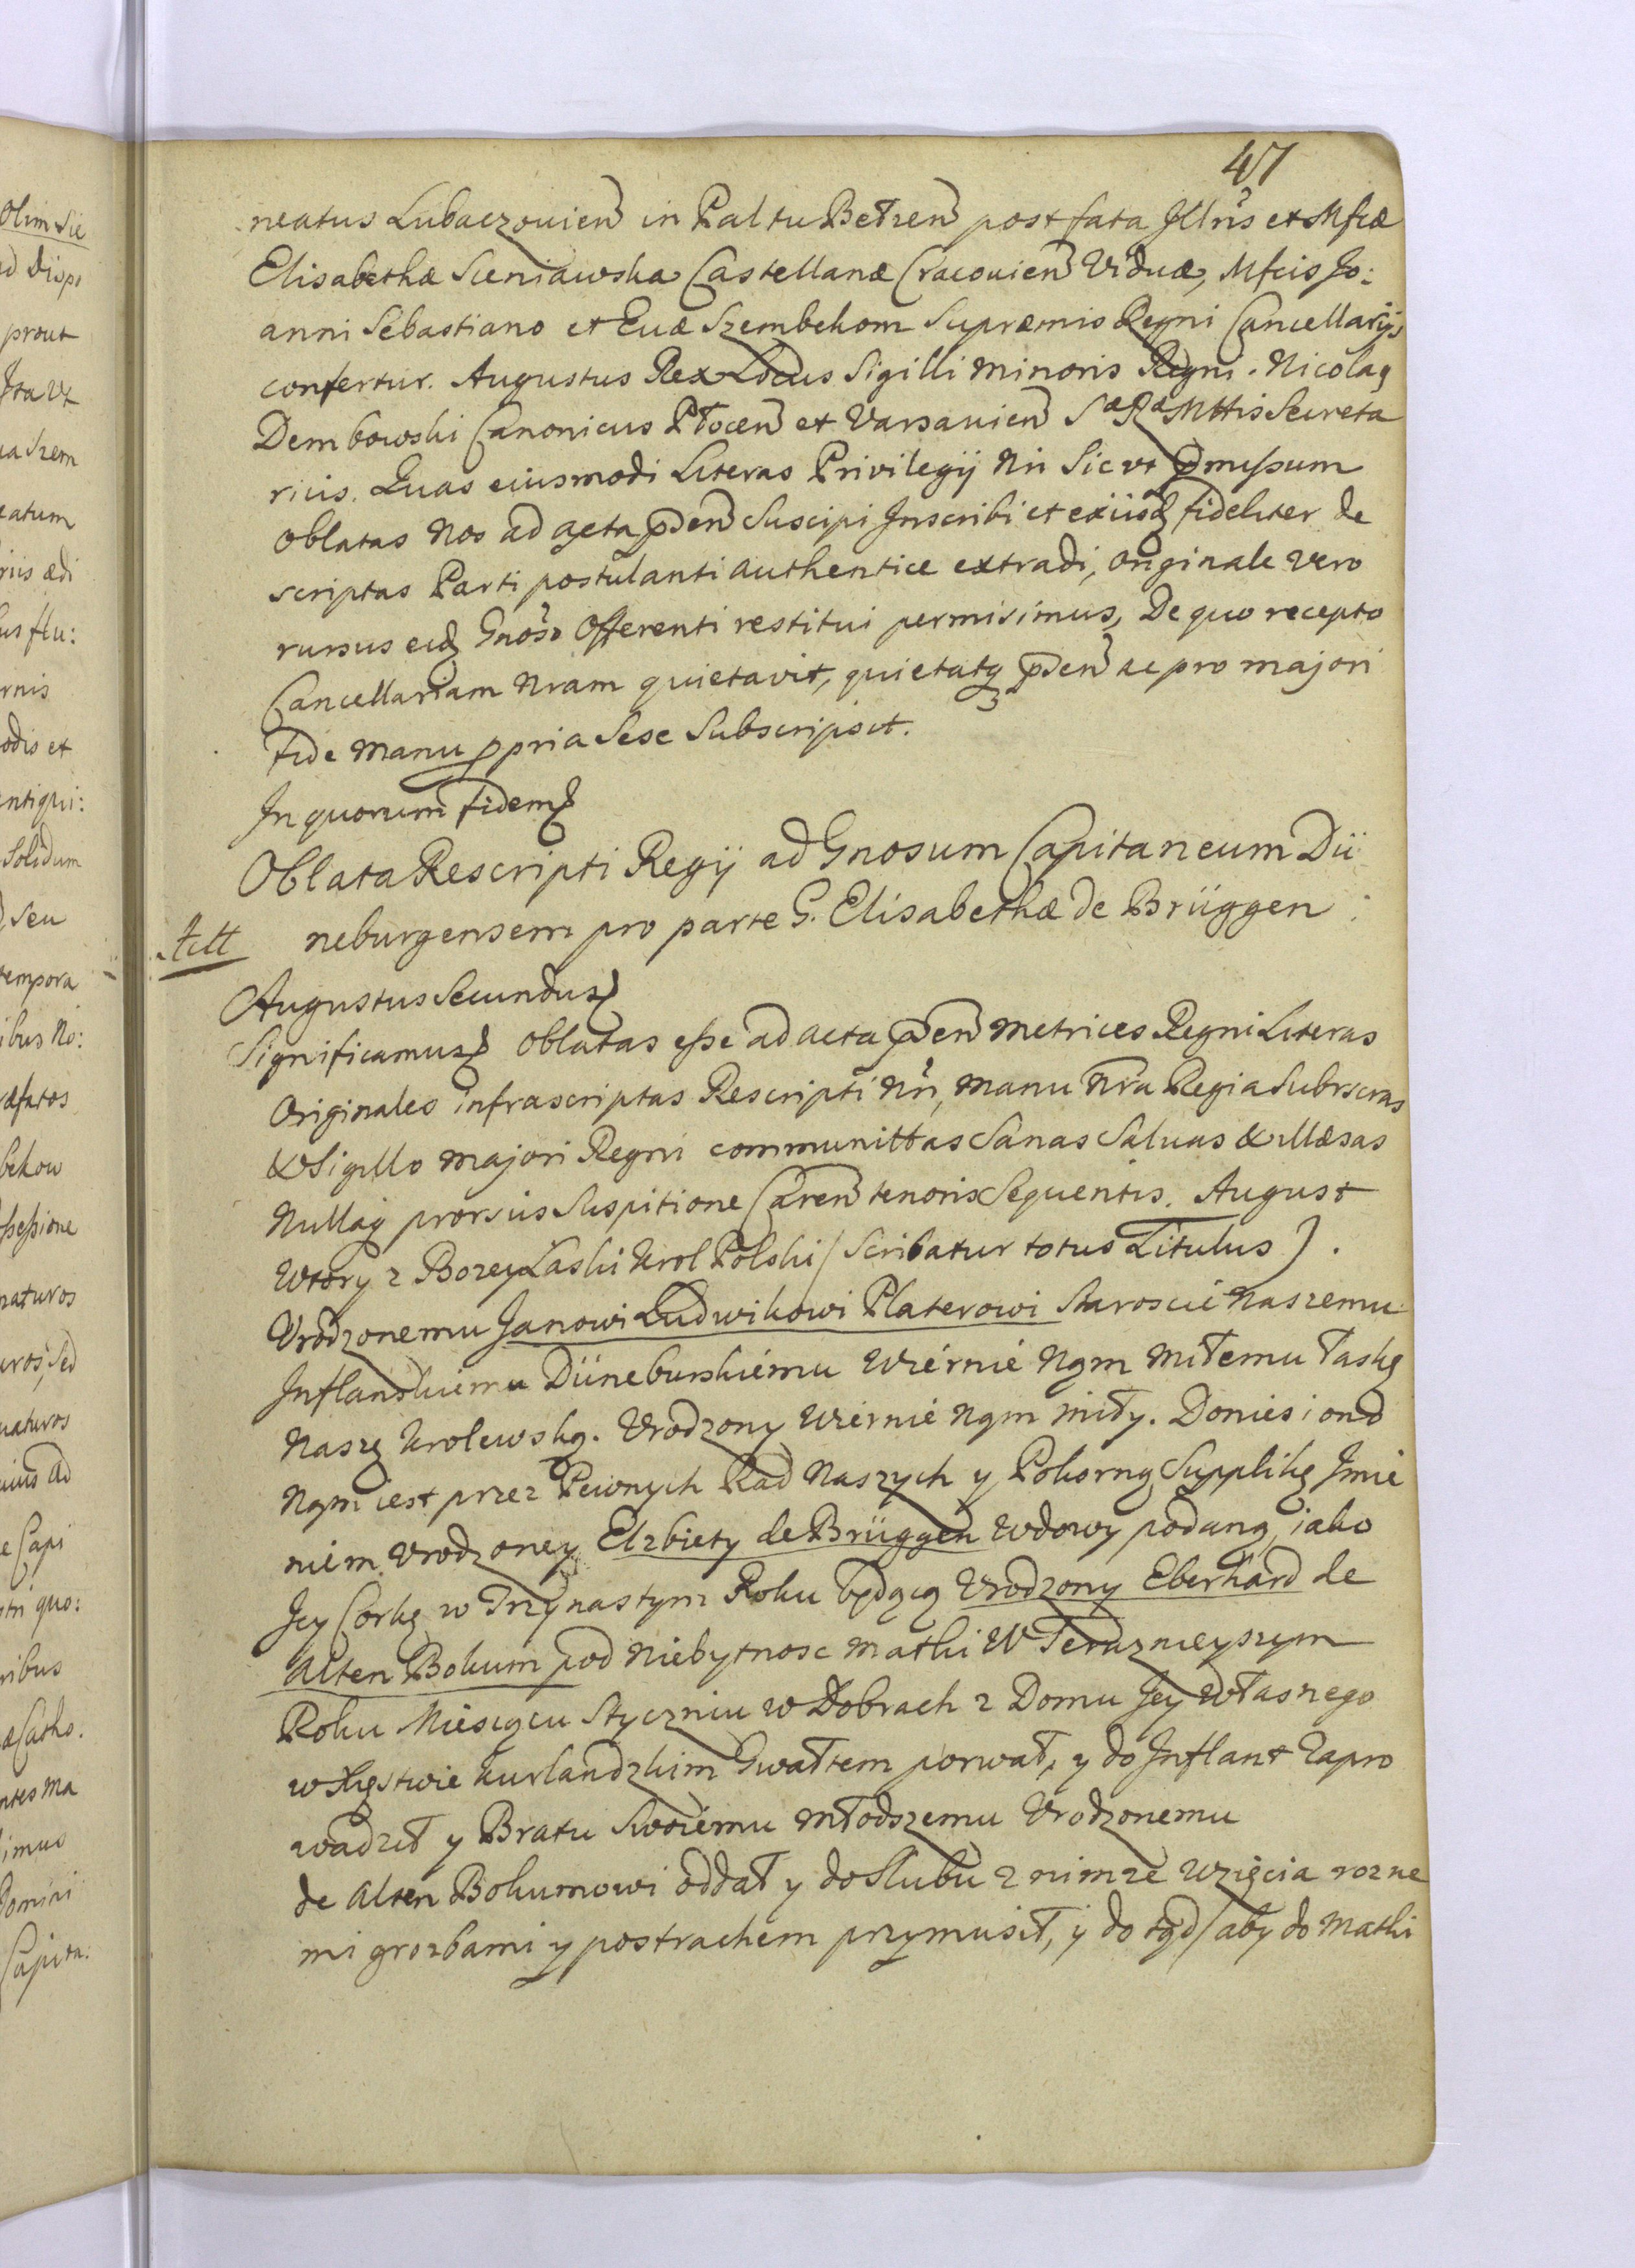 47
neatus Lubaczovien in Paltu Bełzen post fata Jllris et Mfcæ
Elisabethæ Sieniawska Castellanæ Cracovien Viduæ, Mfcis Jo:
anni Sebastiano et Euæ Szembekom Supræmis Regni Cancellarijs
confertur. Augustus Rex Locus Sigilli Minoris Regni. Nicolaq
Dembowski Canonicus Płocen et Varsavien SæRæMttis Secreta
rius. Quas eiusmodi Literas Privilegij Nri Sic ut pmissum
oblatas Nos ad acta pden Suscipi Jnscribi et exijsq fideliter de
scriptas Parti postulanti authentice extradi, originale vero
rursus eidq Gnoso Offerenti restitui permisimus, De quo recepto
Cancellariam Nram quietavit, quietatq pden ac pro majori
fide manu ppria Sese Subscripsit.
Jn quorum fidem
Oblata Rescripti Regij ad Gnosum Capitaneum Dü
neburgensem pro parte G. Elisabethæ de Brüggen
Augustus Secundus
Significamus oblatas esse ad acta pden Metrices Regni Literas
Originales infrascriptas Rescripti Nri, Manu Nra Regia Subrscras
& Sigillo majori Regni communittas Sanas Saluas & illæsas
Nullaq prorsus Suspitione Caren tenoris Sequentis. August
Wtory z Bozey Łaski Krol Polski (Scribatur totus Titulus).
Vrodzonemu Janowi Ludwikowi Platerowi Staroscie Naszemu
Jnflanskiemu Dünebuskiému Wiérnié Nąm Miłemu łaskę
Naszę Krolewską. Vrodzony Wiérnié Nąm miły. Doniesiono
Nąm iest przez Pewnych Rad Naszych y Pokorną Supplikę Jmie
niem Vrodzoney Elzbiety de Brüggen Wdowy podaną, iako
Jey Corkę w Trzynastym Roku będącą Vrodzony Eberhard de
Alten Bokum pod Niebytnosc Matki W Teraznieyszym
Roku Miesiącu Styczniu w Dobrach z Domu Jey Własnego
w Xięstwie Kurlandzkim Gwałtem porwał, y do Jnflant Zapro
wadził y Bratu Swoiému Młodszemu Vrodzonemu
de Alten Bokumowi oddał y do slubu z nimze Wzięcia rozne
mi grozbami y postrachem przymusił, y do tąd (aby do Matki